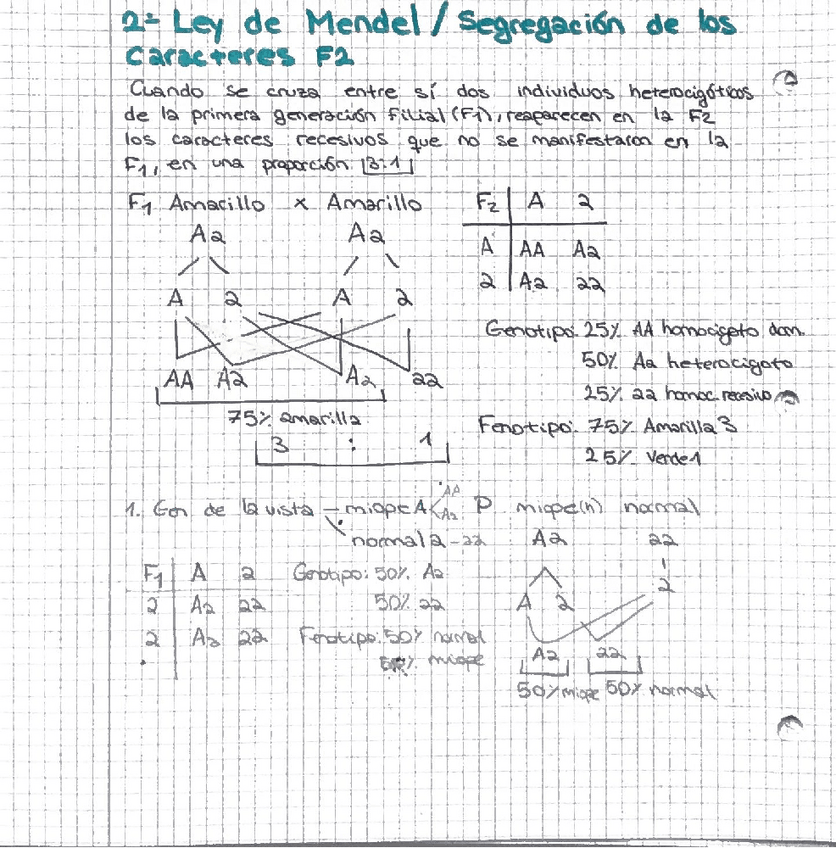 2ª Ley de Mendel / Segregación de los
Caracteres F2
Cuando se cruza entre sí dos individuos heterocigóticos
de la primera generación filial (F1), reaparecen en la F2
los caracteres recesivos que no se manifestaron en la
F1, en una proporción 3:1
F1 Amarillo x Amarillo
Aa Aa
A a A a
AA Aa Aa aa
75% amarilla
3 : 1
F2 A a
A AA Aa
a Aa aa
Genotipo: 25% AA homocigoto dom.
50% Aa heterocigoto
25% aa homoc. recesivo
Fenotipo: 75% Amarilla 3
25% Verde 1
1. Gen de la vista - miope A < AA
Aa
normal a - aa
P miope(h) normal
Aa aa
A a a
Aa aa
50% miope 50% normal
F1 A a
a Aa aa
a Aa aa
Genotipo: 50% Aa
50% aa
Fenotipo: 50% normal
50% miope